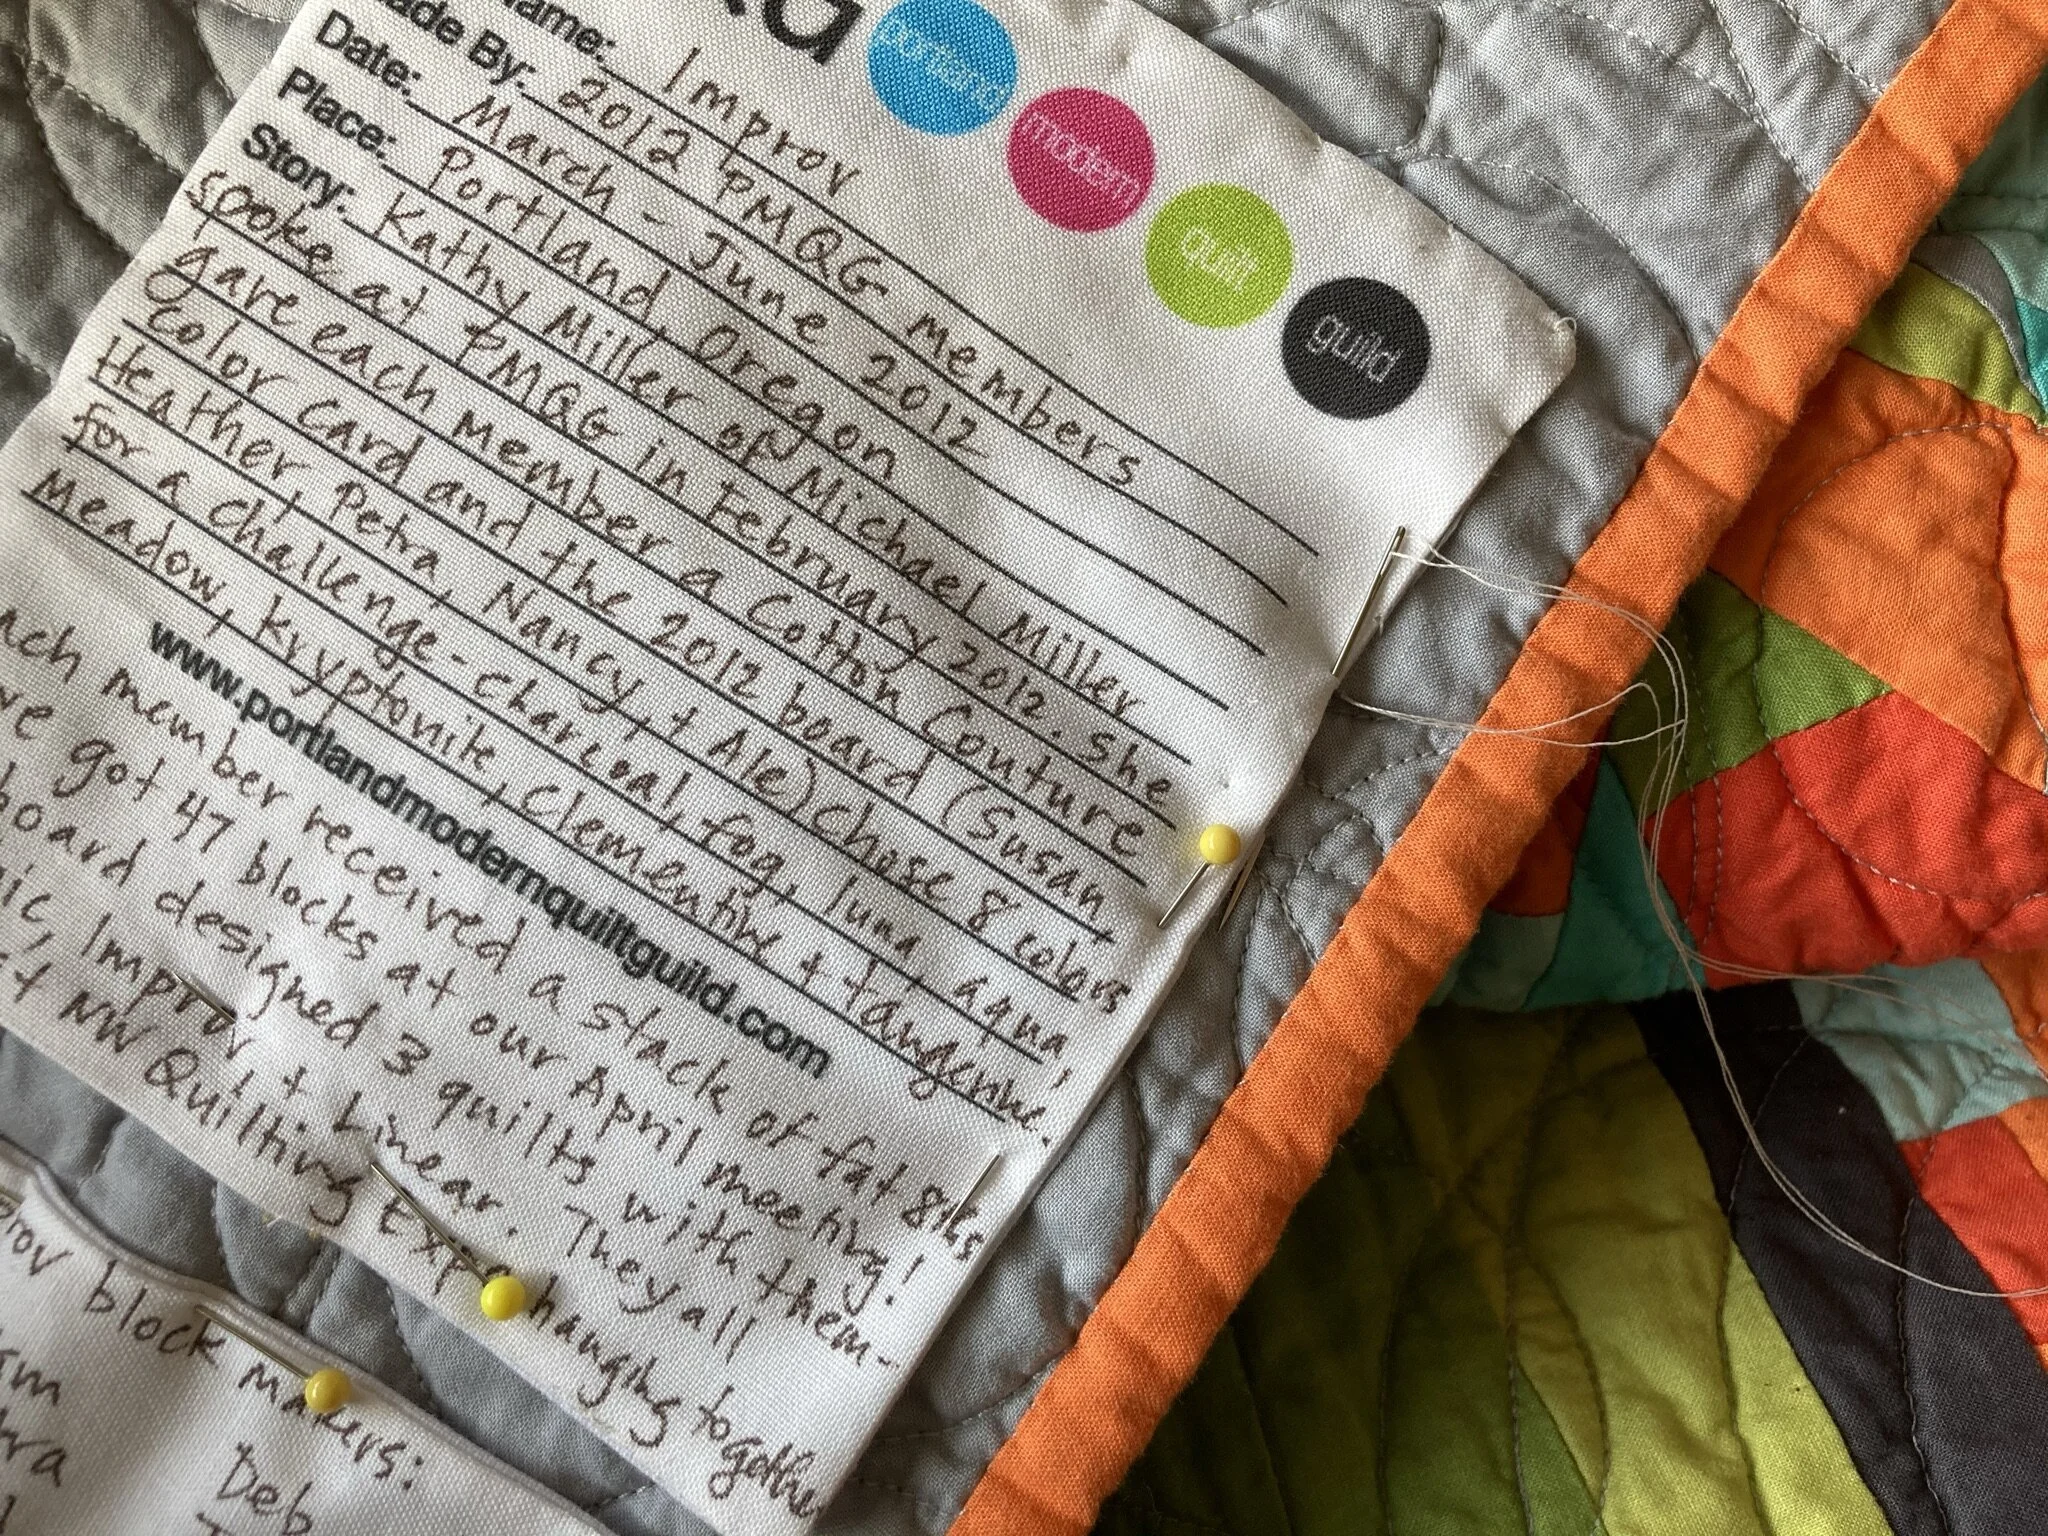 portland
modern
quilt
guild
Name: Improv
Made By: 2012 PMQG members
Date: March - June 2012
Place: Portland, Oregon
Story: Kathy Miller of Michael Miller
spoke at PMQG in February 2012. She
gave each member a Cotton Couture
color card and the 2012 board (Susan,
Heather, Petra, Nancy, + Ale) chose 8 colors
for a challenge - charcoal, fog, luna, aqua,
meadow, kryptonite, clementine + tangerine.
www.portlandmodernquiltguild.com
ach member received a stack of fat 8ths
we got 47 blocks at our April meeting!
board designed 3 quilts with them-
ic, Improv + Linear. They all
st NW Quilting Expo hanging together
rov block makers:
Deb